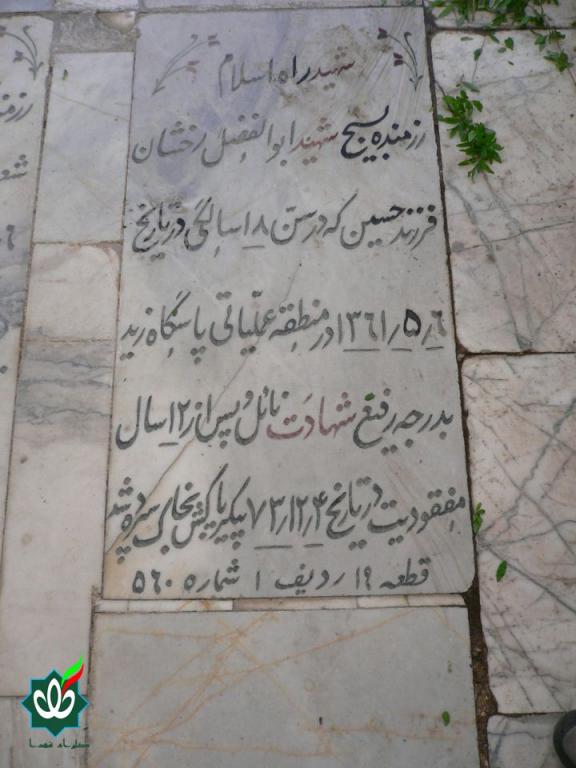 شهید راه اسلام
رزمنده بسیج شهید ابوالفضل رخشان
فرزند حسین که در سن ۱۸ سالگی در تاریخ
۱۳۶۱٫۵٫۶ در منطقه عملیاتی پاسگاه زید
بدرجه رفیع شهادت نائل و پس از ۱۲ سال
مفقودیت در تاریخ ۷۳٫۱۲٫۴ پیکر پاکش بخاک سپرده شد
قطعه ۱۹ ردیف ۱ شماره ۵۶۰